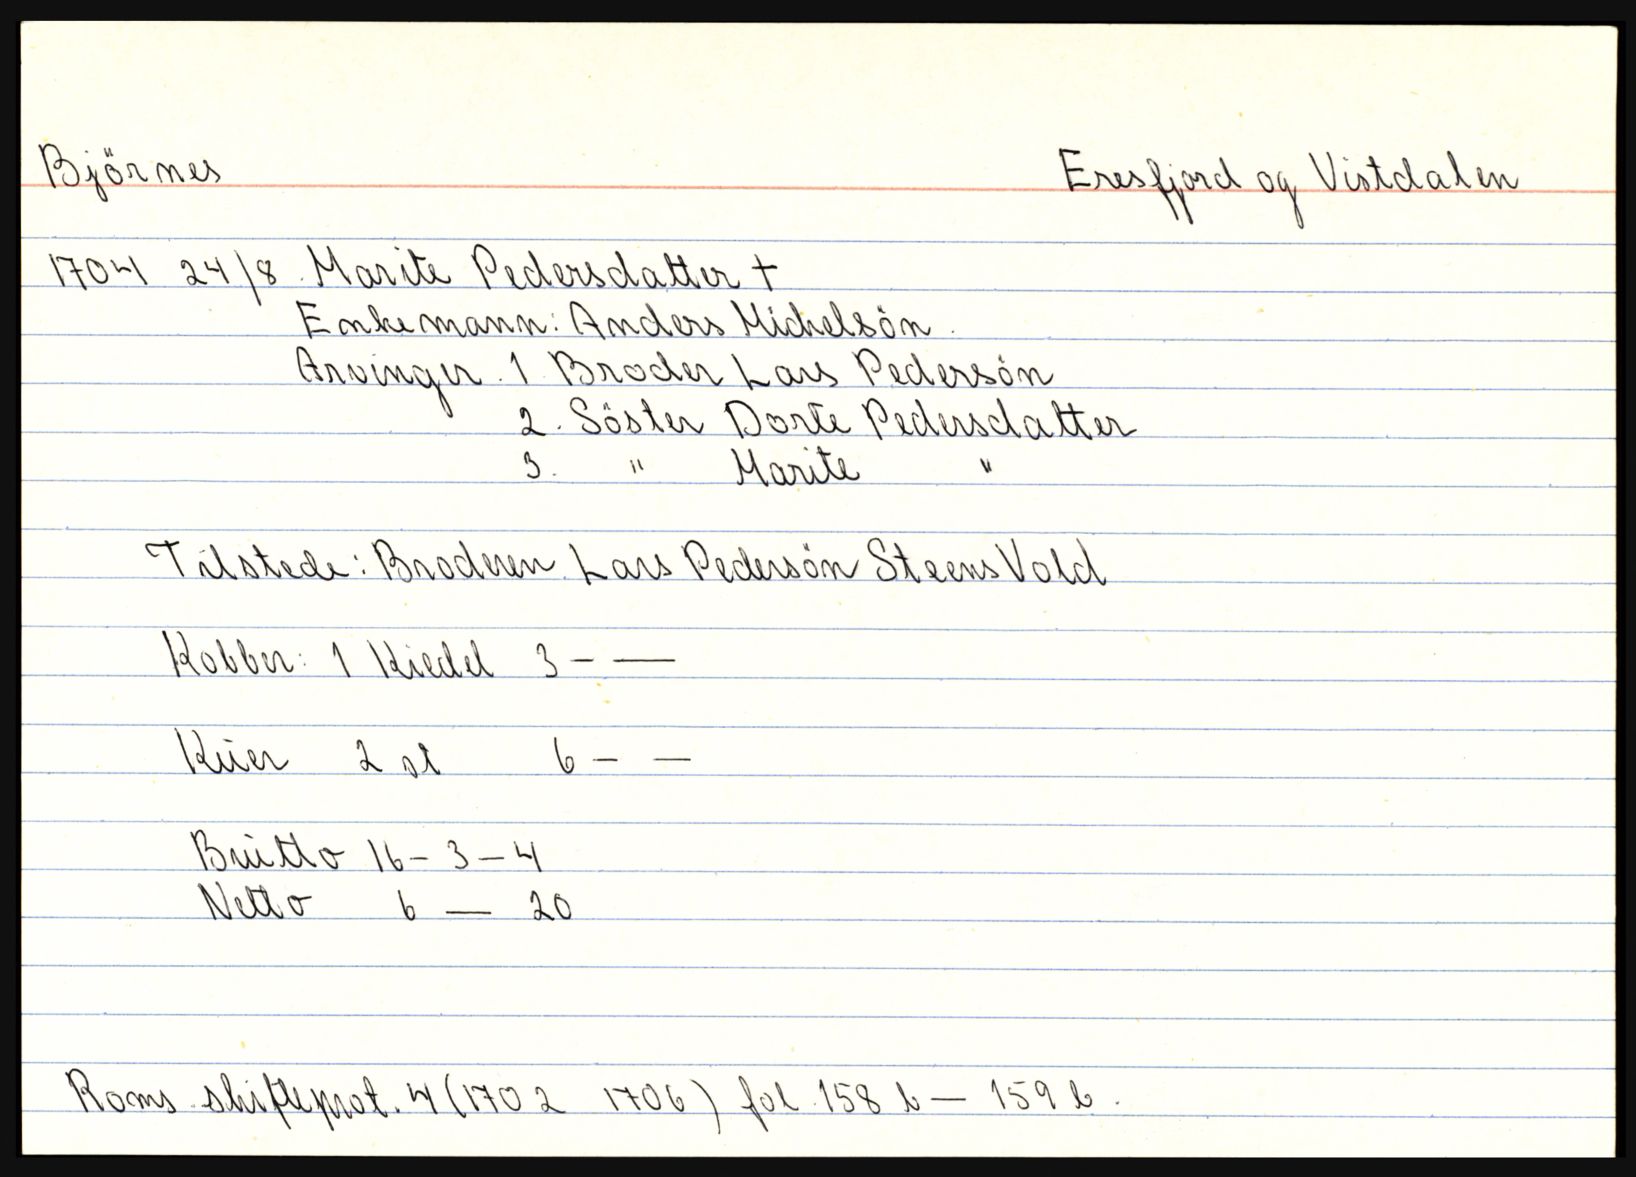 Björnes Eresfjord og Vistdalen
1704 24/8 Marite Pedersdatter †
Enkemann: Anders Michelsön.
Arvinger. 1 Broder Lars Pedersön
2. Söster Dorte Pedersdatter
3. " Marite "
Tilstede: Broderen Lars Pedersön Steens Vold
Kobber: 1 Kiedel 3 – —
Küer 2 st 6 – —
Brütto 16 – 3 – 4
Netto 6 — 20
Roms skifteprot. 4 (1702 1706) fol 158 b — 159 b.